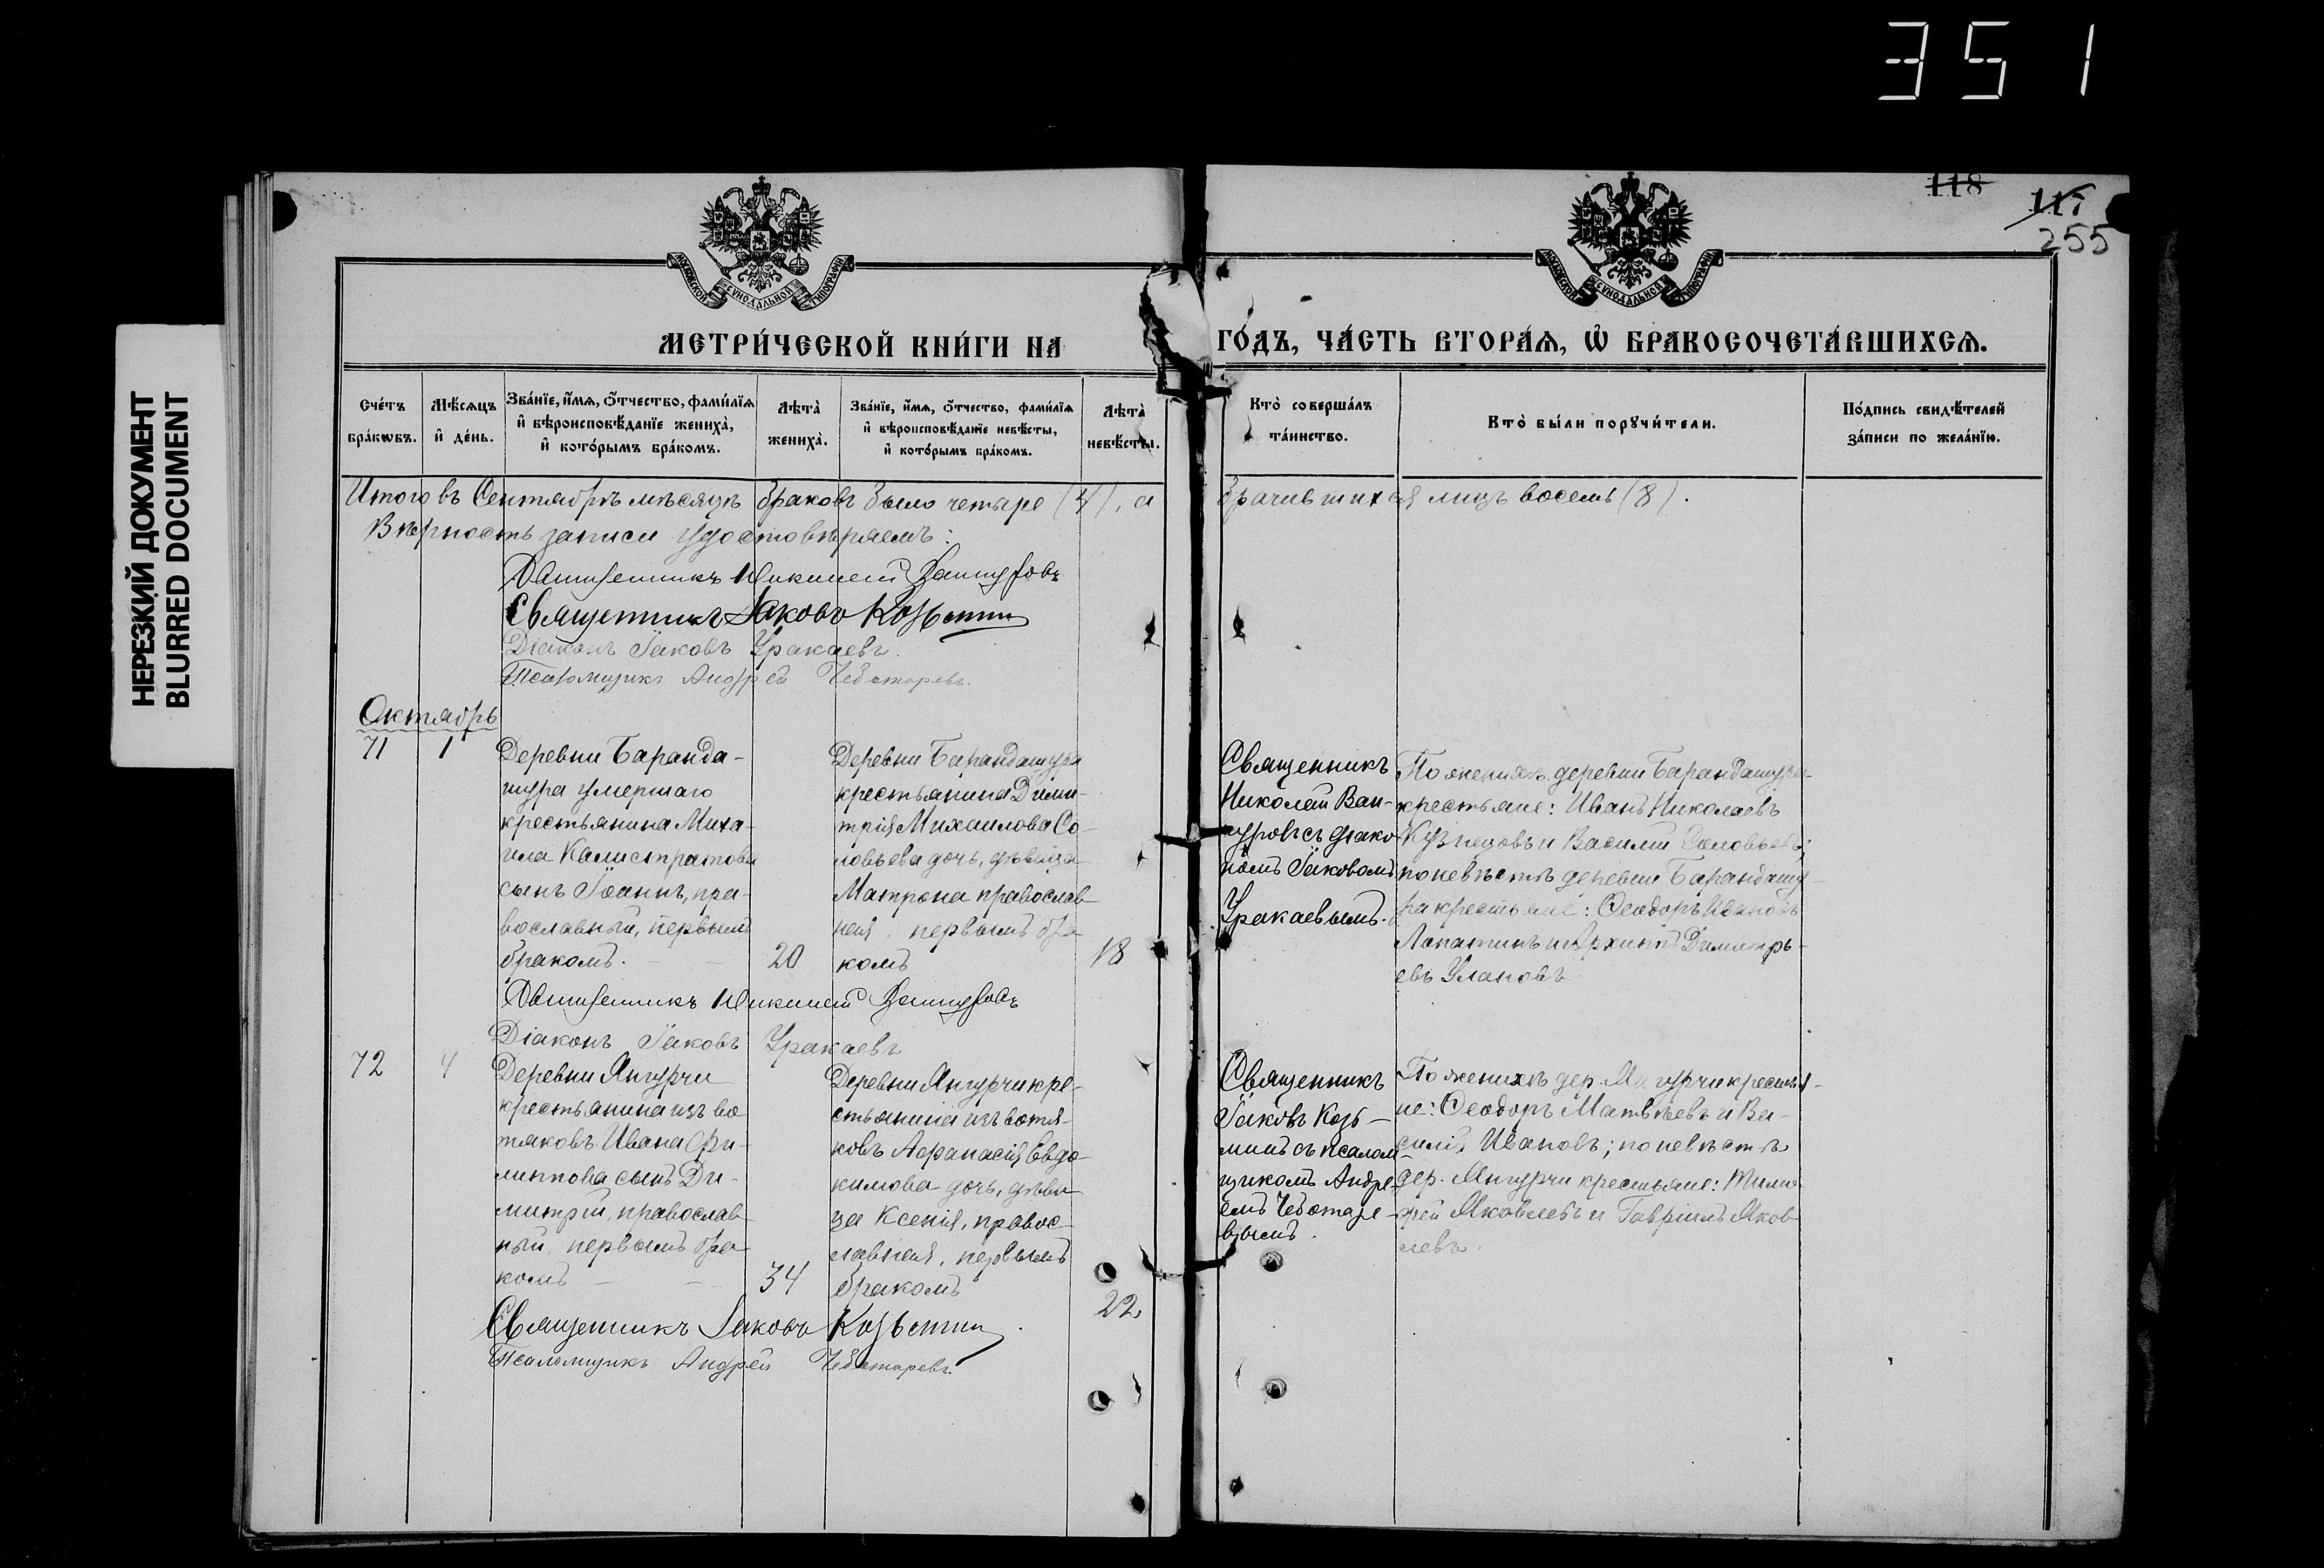 351
НЕРЕЗКИЙ ДОКУМЕНТ
BLURRED DOCUMENT
118
255
МОСКОВСКОЙ СУНОДАЛЬНОЙ ТИПОГРАФІИ
МОСКОВСКОЙ СУНОДАЛЬНОЙ ТИПОГРАФІИ
МЕТРИ́ЧЕСКОЙ КНИ́ГИ НА
ГО́ДЪ, ЧА́СТЬ ВТОРА́Ѧ, Ѽ БРАКОСОЧЕТА́ВШИХСѦ.
Сче́тъ
бра́кѡвъ.
Мѣ́сѧцъ
и҆ де́нь.
Зва́нїе, и҆́мѧ, ѻ҆́тчество, фами́лїѧ
и҆ вѣроисповѣ́данїе жениха̀,
и҆ кото́рымъ бра́комъ.
Лѣта̀
жениха̀.
Зва́нїе, и҆́мѧ, ѻ҆́тчество, фами́лїѧ
и҆ вѣроисповѣ́данїе невѣ́сты,
и҆ кото́рымъ бра́комъ.
Лѣта̀
невѣ́сты.
Кто̀ соверша́лъ
та́инство.
Кто̀ бы́ли порꙋчи́тели.
По́дпись свидѣ́телей
за́писи по жела́нїю.
Итого въ Сентябрѣ мѣсяцѣ браковъ было четыре (4), а
брачившихся лицъ восемь (8).
Вѣрность записи удостовѣряемъ:
Священникъ Николай Вашуровъ
Священникъ Іаковъ Козьминъ
Діаконъ Іаковъ Уракаевъ.
Псаломщикъ Андрей Чеботаревъ.
Октябрь
71
1
Деревни Баранда-
шура умершаго
крестьянина Миха-
ила Калистратова
сынъ Іоаннъ, пра-
вославный, первымъ
бракомъ.
20
Деревни Барандашура
крестьянина Дими-
трія Михаилова Со-
ловьева дочь, дѣвица
Матрона православ-
ная, первымъ бра-
комъ
18
Священникъ
Николай Ваш-
уровъ съ діако-
номъ Іаковомъ
Уракаевымъ.
По женихѣ деревни Барандашура
крестьяне: Иванъ Николаевъ
Кузнецовъ и Василій Соловьевъ;
по невѣстѣ деревни Барандашу-
ра крестьяне: Ѳеодоръ Ивановъ
Лопатинъ и Архипъ Димитрі-
евъ Улановъ
Священникъ Николай Вашуровъ
Діаконъ Іаковъ Уракаевъ
72
4
Деревни Янгурчи
крестьянина изъ во-
тяковъ Ивана Фи-
липпова сынъ Ди-
митрій, православ-
ный, первымъ бра-
комъ
34
Деревни Янгурчи кре-
стьянина изъ вотя-
ковъ Аѳанасія Евдо-
кимова дочь, дѣви-
ца Ксенія, правос-
лавная, первымъ
бракомъ
22.
Священникъ
Іаковъ Козь-
минъ съ псалом-
щикомъ Андре-
емъ Чеботаре-
вымъ.
По женихѣ дер. Янгурчи крестья-
не: Ѳеодоръ Матвѣевъ и Ва-
силій Ивановъ; по невѣстѣ
дер. Янгурчи крестьяне: Тимо-
фей Яковлевъ и Гавріилъ Яков-
левъ.
Священникъ Іаковъ Козьминъ.
Псаломщикъ Андрей Чеботаревъ.